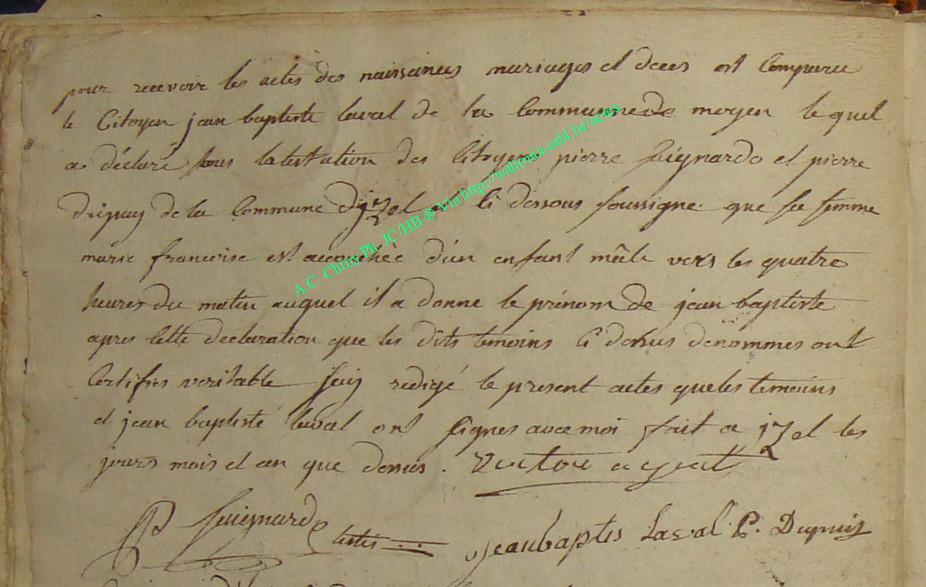 pour recevoir les actes des naissances mariages et deces est Comparu
le Citoyen jean baptiste laval de la Commune de moyen le quel
a déclaré sous latestation des Citoyens pierre Guignardo et pierre
Dupuy de la Commune d'izel et ci dessous soussigne que sa femme
marie francoise est accouchée d'un enfant mâle vers les quatre
heures du matin auquel il a donne le prénom de jean baptiste
apres cette declaration que les dits temoins ci dessus denommes ont
Certifies veritable j'ais redigé le present actes queles temoins
et jean baptiste laval ont signes avec moi fait a izel les
jours mois et an que dessus. agent
testis
Jeanbaptis Laval P. Dupuis
A.C. Chiny Ph. JC/HB © via http://wallonica-asbl.be/news